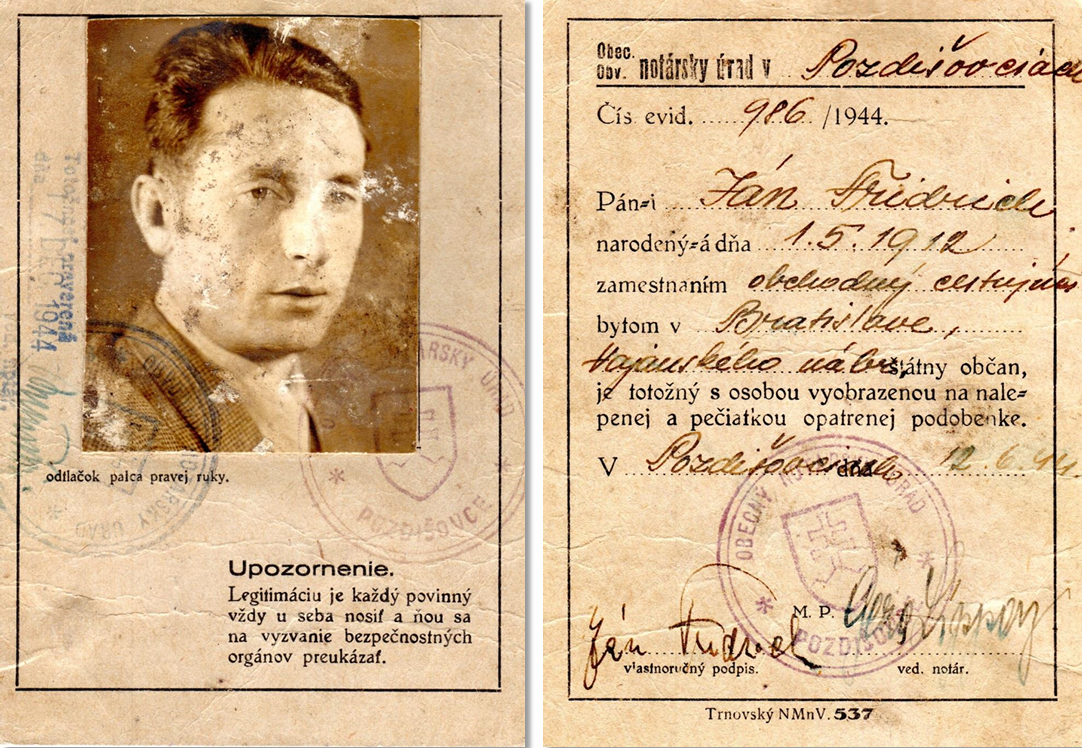 dňa
1944
odtlačok palca pravej ruky.
NOTÁRSKY ÚRAD
POZDIŠOVCE
Upozornenie.
Legitimáciu je každý povinný
vždy u seba nosiť a ňou sa
na vyzvanie bezpečnostných
orgánov preukázať.
Obec.
Obv. notársky úrad v Pozdišovciach
Čís evid. 986 /1944.
Pán-i Ján Fridrich
narodený-á dňa 1.5.1912
zamestnaním obchodný cestujúci
bytom v Bratislave,
Vajanského nábr. štátny občan,
je totožný s osobou vyobrazenou na nale-
penej a pečiatkou opatrenej podobenke.
V Pozdišovciach dňa 12.6.44.
OBECNÝ NOTÁRSKY ÚRAD
POZDIŠOVCE
M. P.
Ján Fridrich
vlastnoručný podpis. ved. notár.
Trnovský NMnV. 537